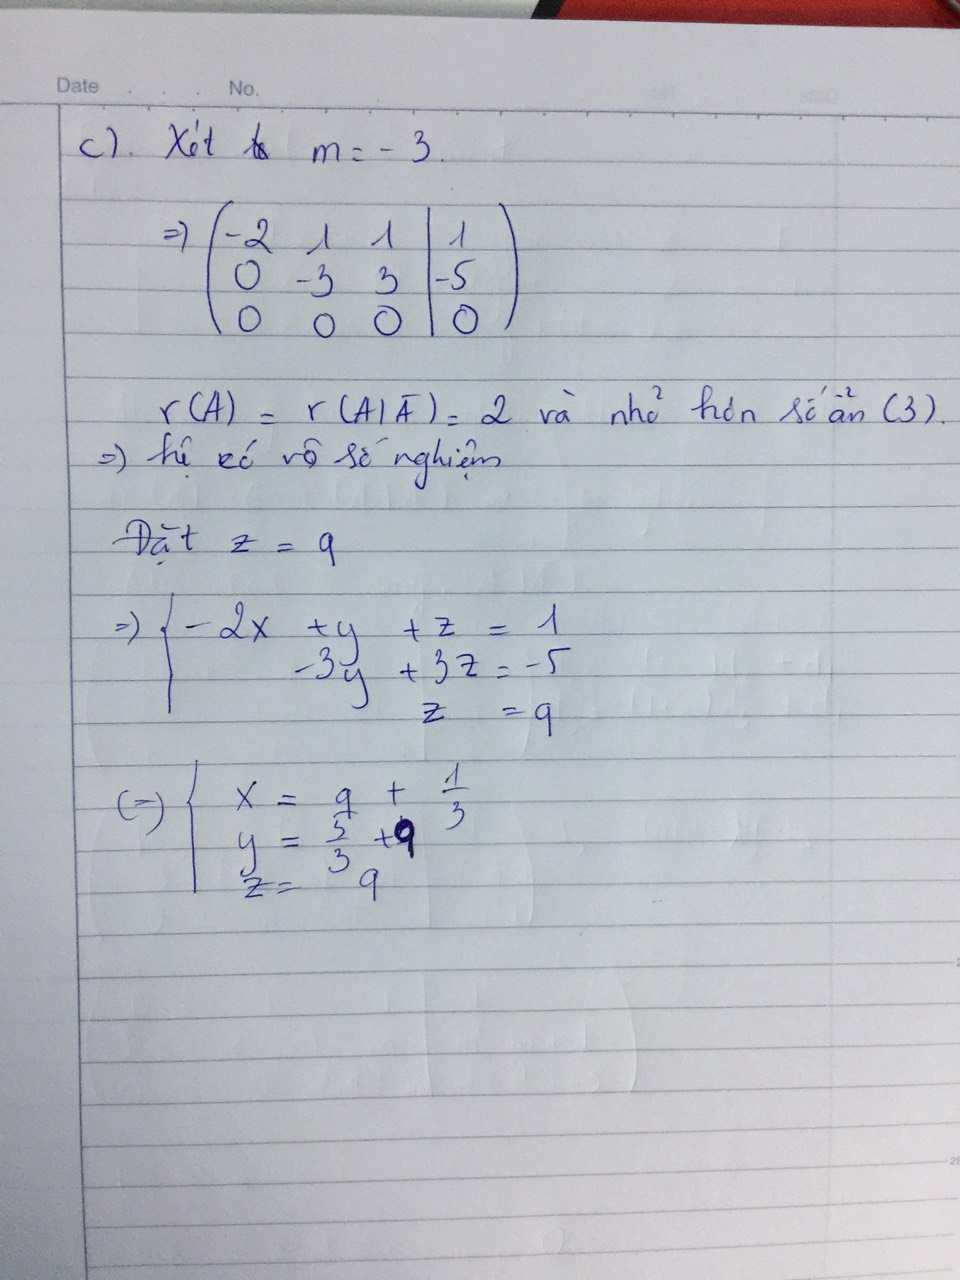 Date . . . No.
c). Xét m = -3.
=> (-2 1 1 | 1
0 -3 3 | -5
0 0 0 | 0)
r(A) = r(A|Ā) = 2 và nhỏ hơn số ẩn (3).
=> hệ có vô số nghiệm
Đặt z = q
=> { -2x +y + z = 1
-3y + 3z = -5
z = q
(=) { x = q + 1/3
y = 5/3 + q
z = q